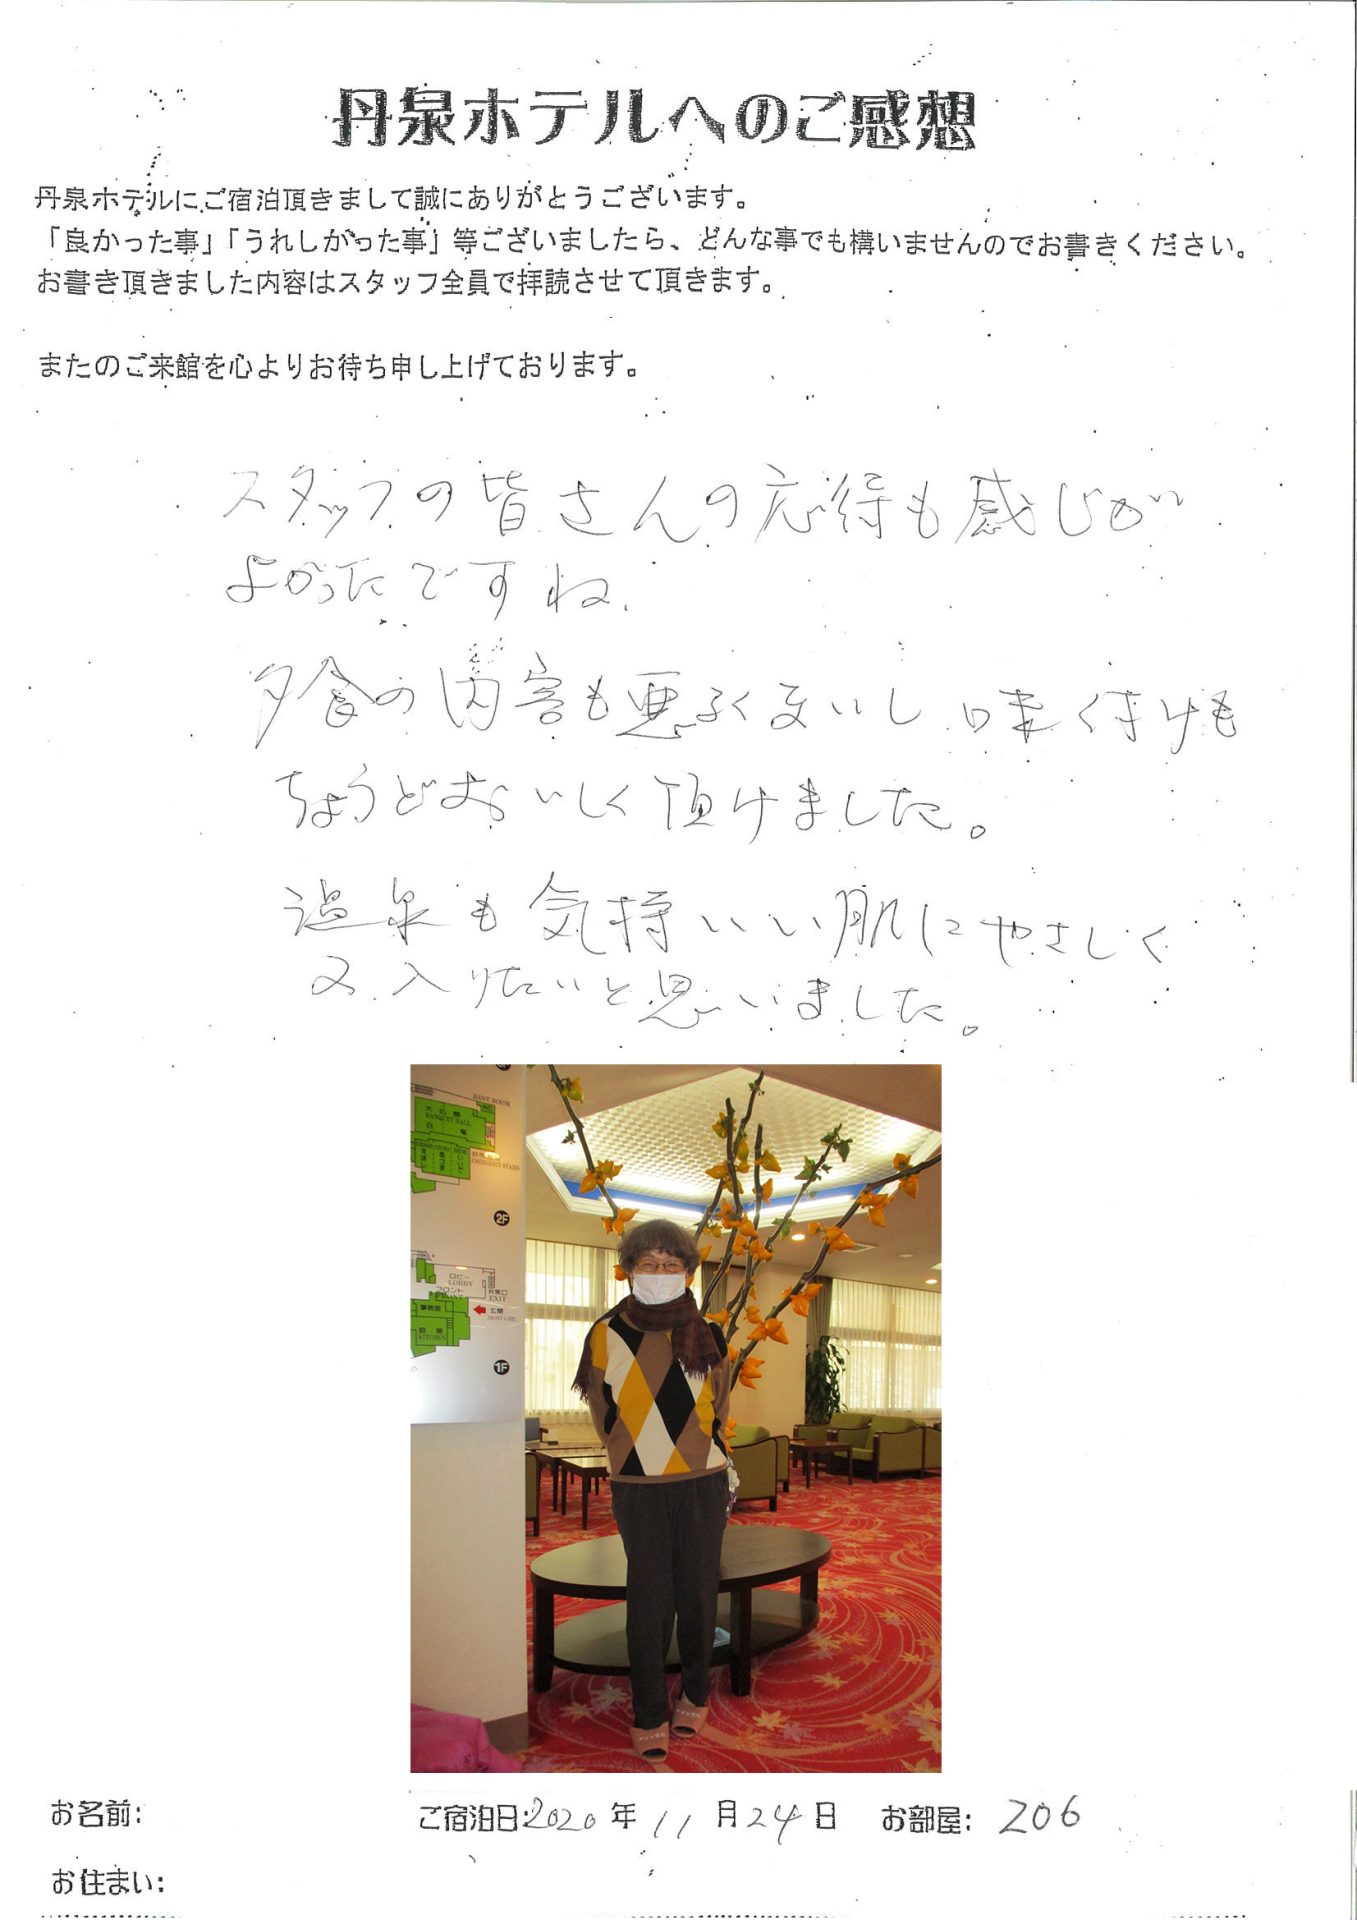 丹泉ホテルへのご感想
丹泉ホテルにご宿泊頂きまして誠にありがとうございます。
「良かった事」「うれしかった事」等ございましたら、どんな事でも構いませんのでお書きください。
お書き頂きました内容はスタッフ全員で拝読させて頂きます。
またのご来館を心よりお待ち申し上げております。
スタッフの皆さんの応待も感じが
よかったですね、
夕食の内容も悪くないし 味付けも
ちょうどおいしく頂けました。
温泉も気持いい肌にやさしく
又入りたいと思いました。
REST ROOM
BANQUET HALL
EMERGENCY STAIRS
2F
ロビー
LOBBY
フロント
FRONT
非常口
EXIT
事務室
玄関
FRONT GATE
厨房
KITCHEN
1F
お名前:
ご宿泊日:2020年11月24日 お部屋: 206
お住まい: